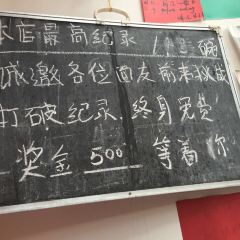 本店最高纪录 11 碗
诚邀各位面友前来挑战
打破纪录、终身免费
奖金 500 等着你